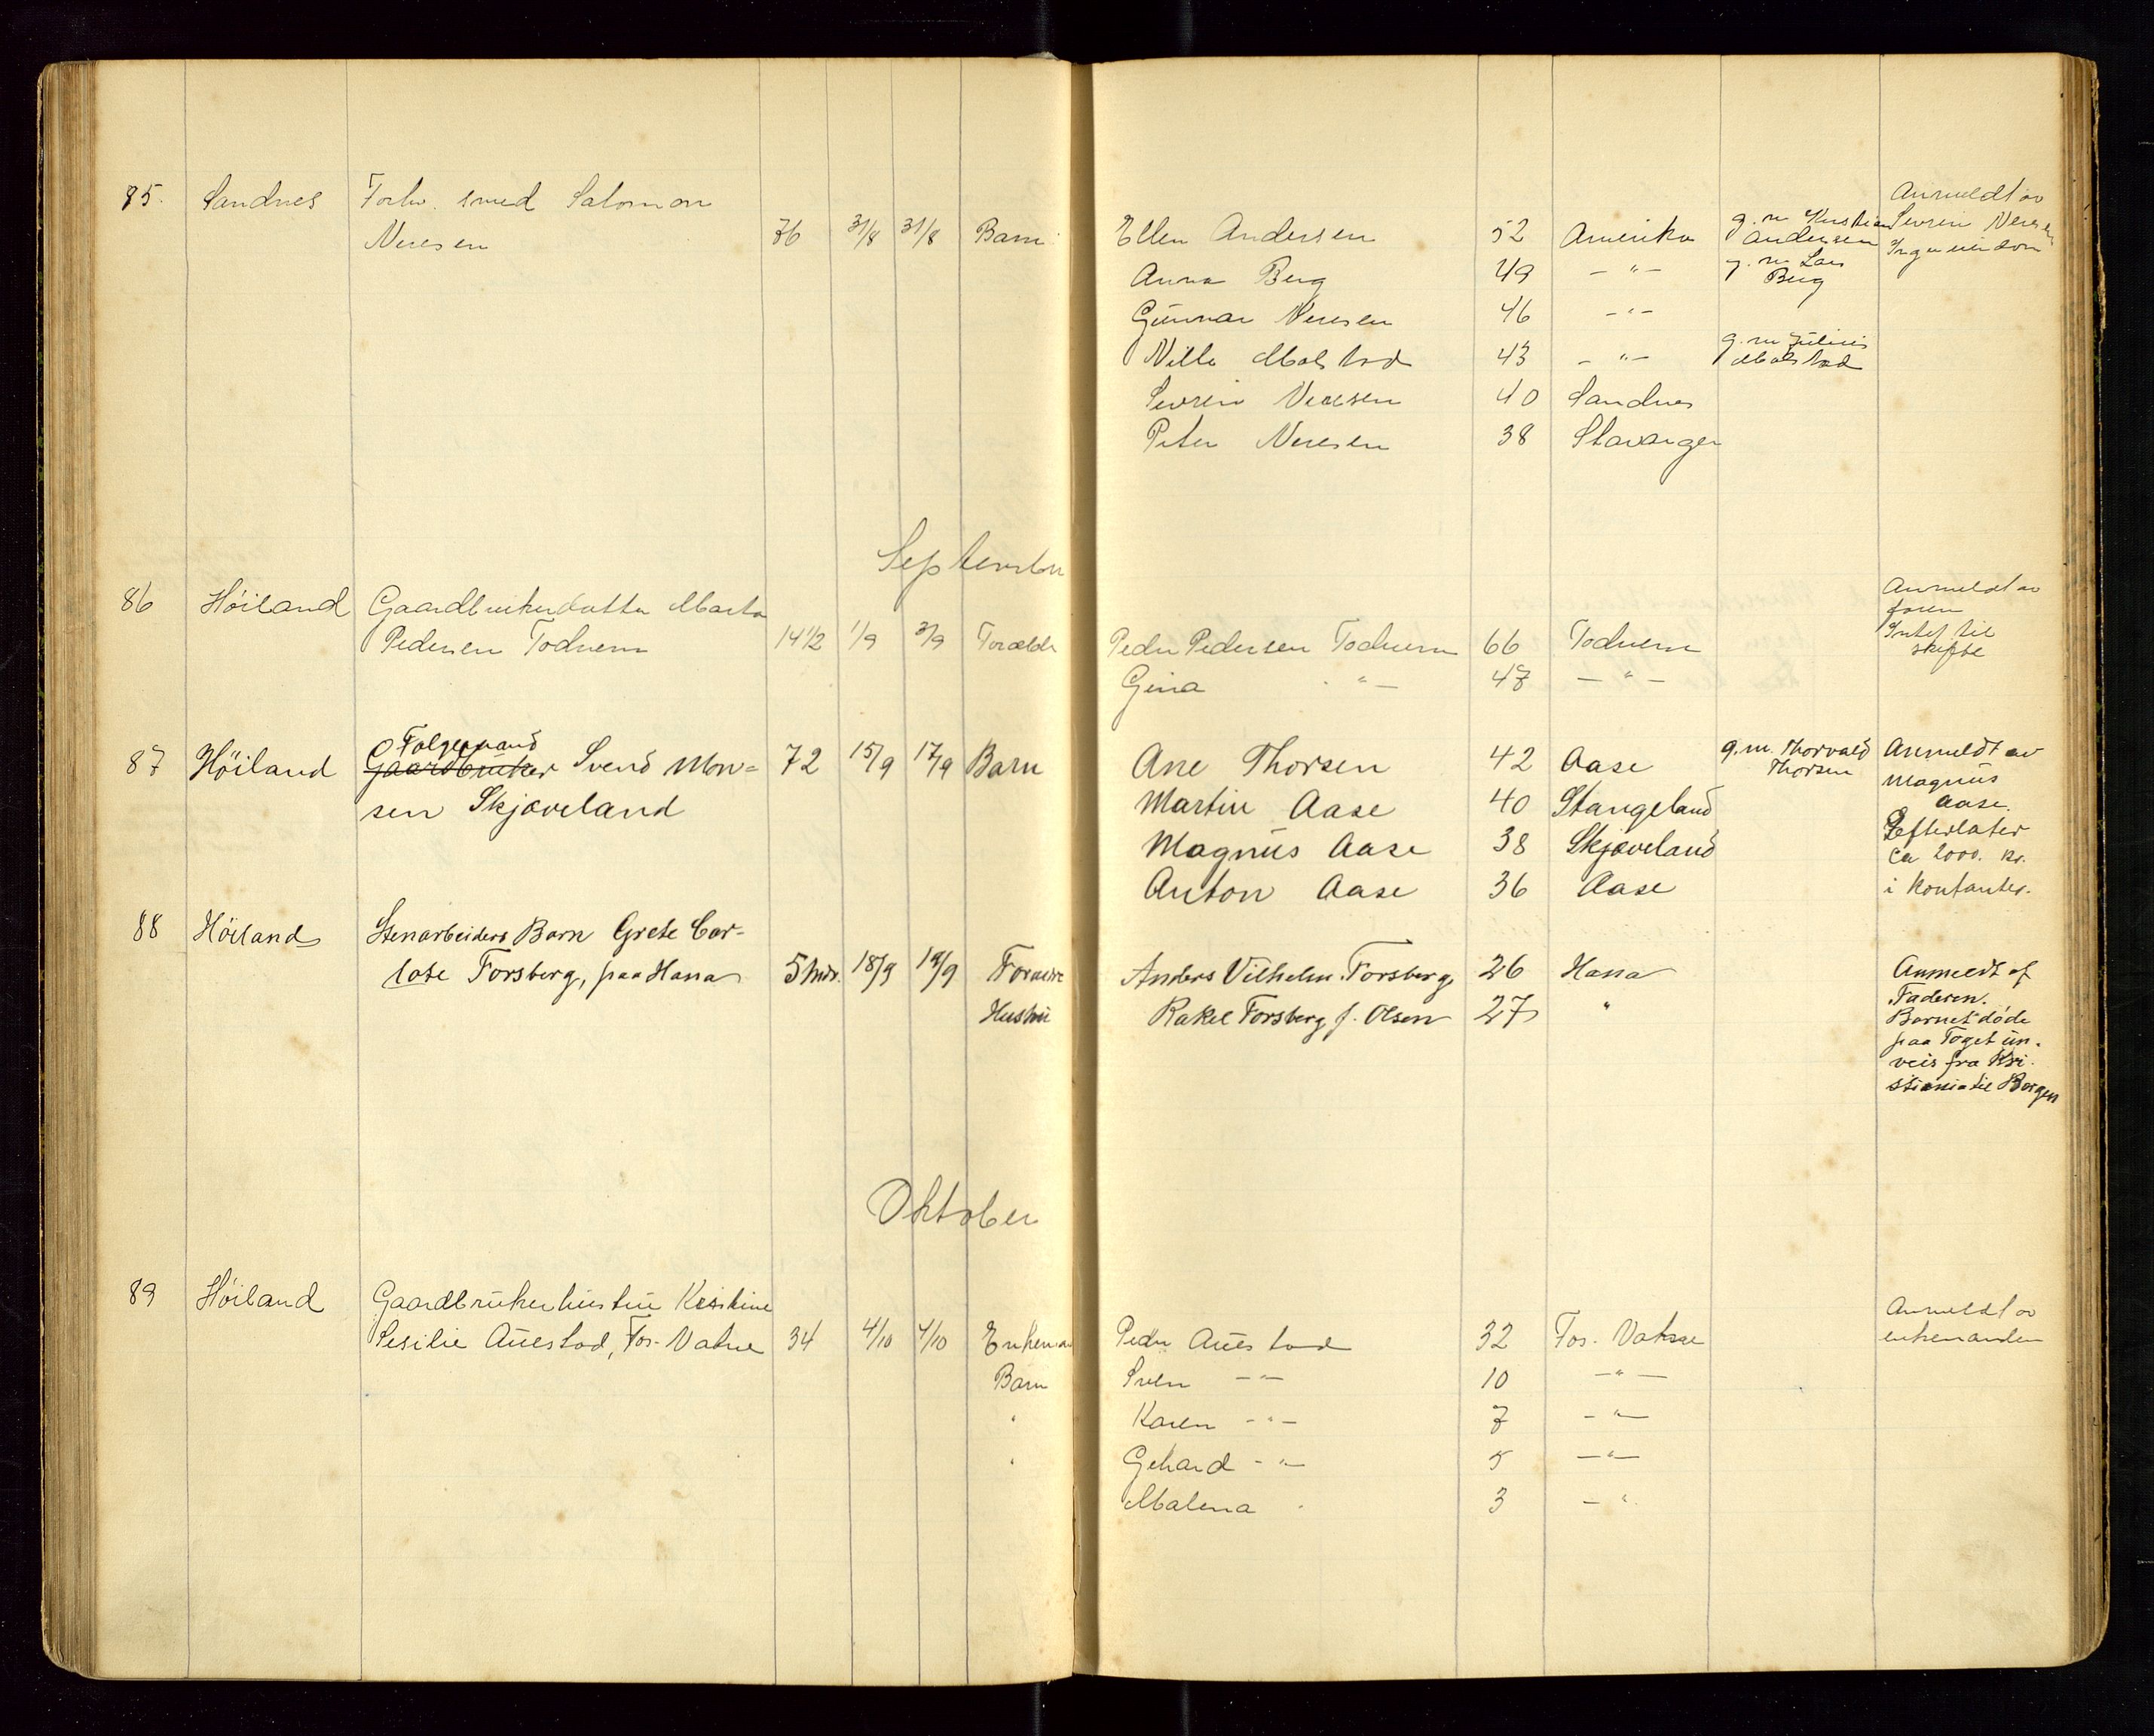 85. Sandnes Forhv. smed Salomon
Neresen 76 31/8 31/8 Barn Ellen Andersen 52 Amerika g. m. Kristian Andersen Anmeldt av Sevrin Neresen Ingen eiendom
Anna Berg 49 — " — g. m. Lars Berg
Gunnar Neresen 46 — " —
Nille Molstad 43 — " — g. m. Julius Molstad
Sevrin Neresen 40 Sandnes
Peter Neresen 38 Stavanger
September
86 Höiland Gaardbrukerdatter Marta
Pedersen Todnem 14 1/2 1/9 3/9 Forældr Peder Pedersen Todnem 66 Todnem Anmeldt av faren Intet til skifte
Gina — " — 47 — " —
87 Höiland Gaardbruker Folgemand Svend Mon-
sen Skjæveland 72 15/9 17/9 Barn Ane Thorsen 42 Aase g. m. Thorvald Thorsen Anmeldt av
Martin Aase 40 Stangeland Magnus Aase.
Magnus Aase 38 Skjæveland Efterlater ca 2000. kr.
Anton Aase 36 Aase i kontanter.
88 Höiland Stenarbeiders Barn Grete Car-
lote Forsberg, paa Hana 5 mdr. 18/9 19/9 Anders Vilhelm Forsberg 26 Hana Anmeldt af
Hustru Rakel Forsberg f. Olsen 27 " Faderen.
Barnet döde
paa Toget un-
veis fra Kri-
stiania til Bergen
Oktober
89 Höiland Gaardbrukerhustru Kristine
Sesilie Auestad, Fos-Vatne 34 4/10 4/10 Enkeman Peder Auestad 32 Fos-Vatne Anmeldt av enkemanden
Barn Sven — " — 10 — " —
" Karen — " — 7 — " —
" Gehard — " — 5 — " —
Malena " 3 — "